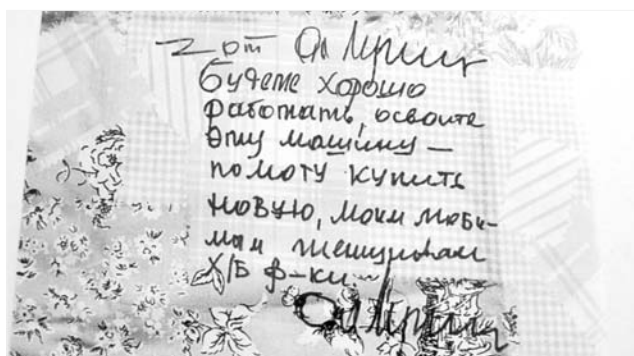 от
Будете хорошо
работать, освоите
эту машину —
помогу купить
новую, моим люби-
мым женщинам
Х/Б ф-ки